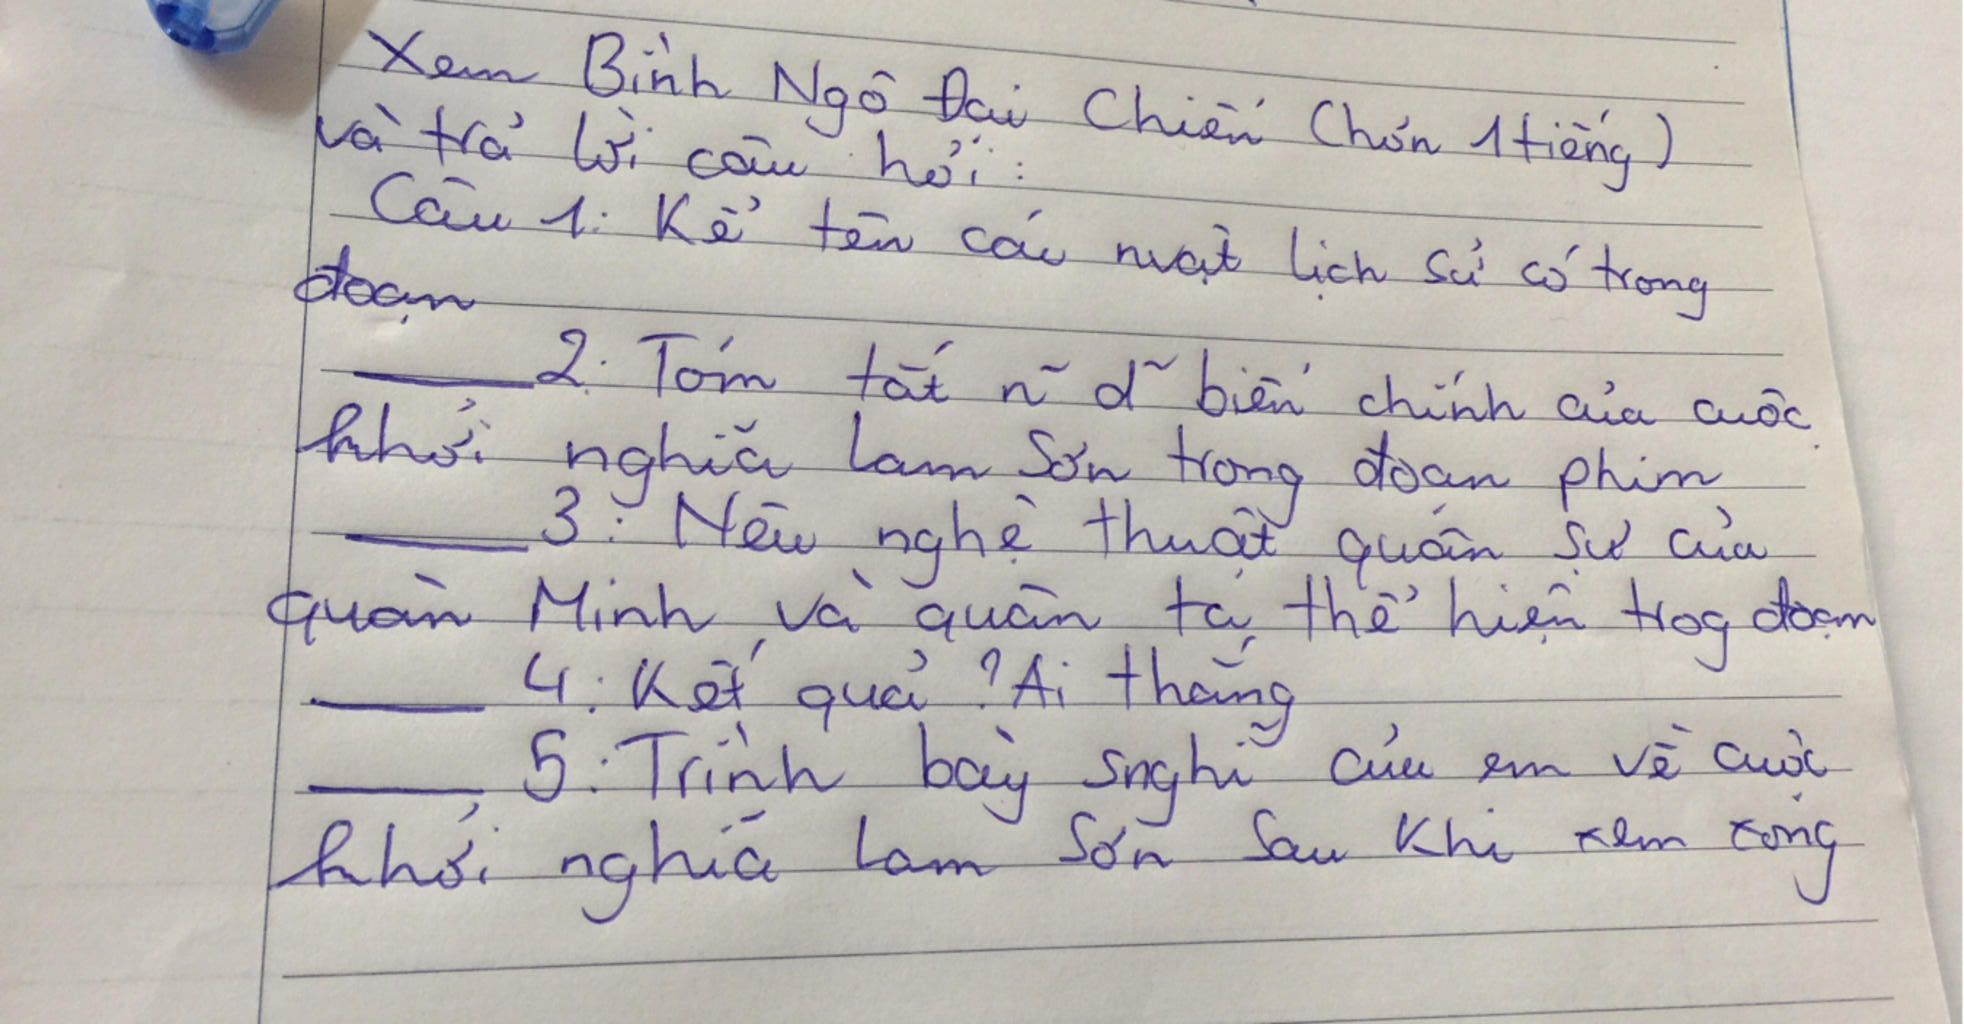 Xem Bình Ngô Đại Chiến (hơn 1 tiếng)
và trả lời câu hỏi:
Câu 1: Kể tên các nvật lịch sử có trong
đoạn
2: Tóm tắt n~ d~ biến chính của cuộc
khởi nghĩa Lam Sơn trong đoạn phim
3: Nêu nghệ thuật quân sự của
quân Minh và quân ta thể hiện trog đoạn
4: Kết quả? Ai thắng
5: Trình bày snghĩ của em về cuộc
khởi nghĩa Lam Sơn sau khi xem xong